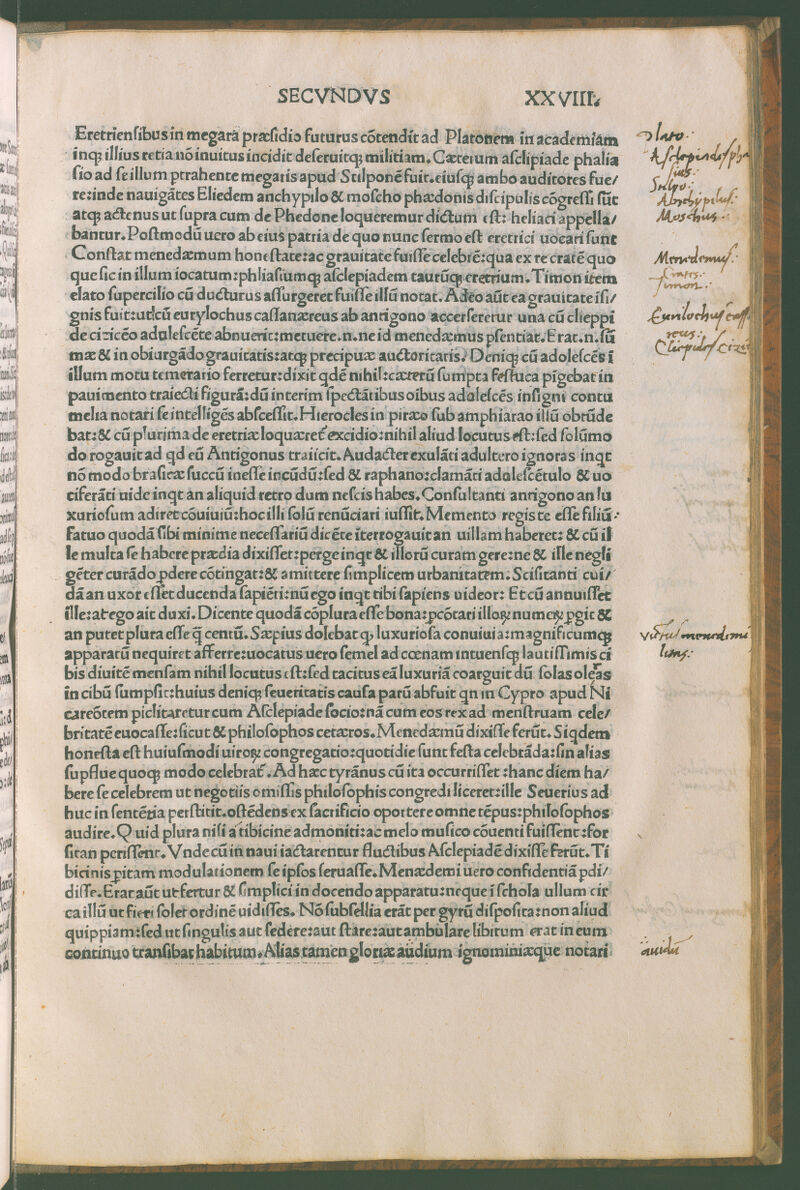 SECVNDVS XXVIII.
Eretriensibus in megarā præsidio futurus cōtendit ad Platonem in academiam
inq; illius retia nō inuitus incidit deseruitq; militiam. Cæterum asclipiade phalia
sio ad se illum ptrahente megaris apud Stilponē fuit. eiusq; ambo auditores fue/
re: inde nauigātes Eliedem anchypilo & moscho phædonis discipulis cōgressi sūt
atq; actenus ut supra cum de Phedone loqueremur dictum est: heliaci appella/
bantur. Postmodū uero ab eius patria de quo nunc sermo est eretrici uocari sunt
Constat menedæmum honestate: ac grauitate fuisse celebrē: qua ex re cratē quo
que sic in illum iocatum: phliasiumq; asclepiadem taurūq; eretrium. Timon item
elato supercilio cū ducturus assurgeret fuisse illū notat. Adeo aūt ea grauitate isi/
gnis fuit: ut cū eurylochus cassanæreus ab antigono accerseretur una cū clieppi
de cizicēo adulescēte abnuerit: metuere. n. ne id menedæmus psentiat. Erat. n. sū
mæ & in obiurgādo grauitatis: atq; precipuæ auctoritatis. Deniq; cū adolescēs ī
illum motu temerario ferretur: dixit qdē nihil: cæterū sumpta festuca pigebat in
pauimento traiecti figurā: dū interim spectātibus oibus adulescēs insigni contu
melia notari se intelligēs abscessit. Hierocles in piræo sub amphiarao illū obtūde
bat: & cū plurima de eretriæ loquæret excidio: nihil aliud locutus est: sed solūmo
do rogauit ad qd eū Antigonus traiicit. Audacter exulāti adultero ignoras inqt
nō modo brasicæ succū inesse incūdū: sed & raphano: clamāti adulescētulo & uo
ciferāti uide inqt an aliquid retro dum nescis habes. Consultanti antigono an lu
xuriosum adiret cōuiuiū: hoc illi solū renūciari iussit. Memento regis te esse filiū.
Fatuo quodā sibi minime necessariū dicēte iterrogauit an uillam haberet: & cū il
le multa se habere prædia dixisset: perge inqt & illorū curam gere: ne & ille negli
gēter curādo pdere cōtingat: & amittere simplicem urbanitatem. Scisitanti cui/
dā an uxor esset ducenda sapiēti: nū ego inqt tibi sapiens uideor: Et cū annuisset
ille: at ego ait duxi. Dicente quodā cōplura esse bona: pcōtari illoꝝ numeꝝ pgit &
an putet plura esse q̄ centū. Sæpius dolebat q; luxuriosa conuiuia: magnificumq;
apparatū nequiret afferre: uocatus uero semel ad cœnam intuensq; lautissimis ci
bis diuitē mensam nihil locutus est: sed tacitus eā luxuriā coarguit dū solas oleas
in cibū sumpsit: huius deniq; seueritatis causa parū abfuit qn in Cypro apud Ni
careōtem piclitaretur cum Asclepiade socio: nā cum eos rex ad menstruam cele/
britatē euocasse: sicut & philosophos cetæros. Menedæmū dixisse ferūt. Siqdem
honesta est huiusmodi uiroꝝ congregatio: quotidie sunt festa celebrāda: sin alias
supflue quoq; modo celebrat. Ad hæc tyrānus cū ita occurrisset: hanc diem ha/
bere se celebrem ut negotiis omissis philosophis congredi liceret: ille Seuerius ad
huc in sentētia perstitit. ostēdens ex sacrificio oportere omne tēpus: philosophos
audire. Quid plura nisi a tibicine admoniti: ac melo musico cōuenti fuissent: for
sitan periissent. Vnde cū in naui iactarentur fluctibus Asclepiadē dixisse ferūt. Ti
bicinis pitam modulationem se ipsos seruasse. Menædemi uero confidentiā pdi/
disse. Erat aūt ut fertur & simplici in docendo apparatu: neque i schola ullum cir
ca illū ut fieri solet ordinē uidisses. Nō subsellia erāt per gyrū disposita: non aliud
quippiam: sed ut singulis aut sedere: aut stare: aut ambulare libitum erat in eum
continuo transibat habitum. Alias tamen gloriæ audium ignominiæque notari
Plato.
Stilpo.
Anchypilus.
Moschus.
Menedemus.
Timon.